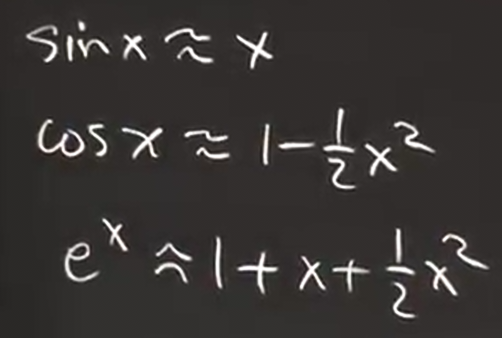 sin x ≈ x
cos x ≈ 1 - 1/2 x²
eˣ ≈ 1 + x + 1/2 x²